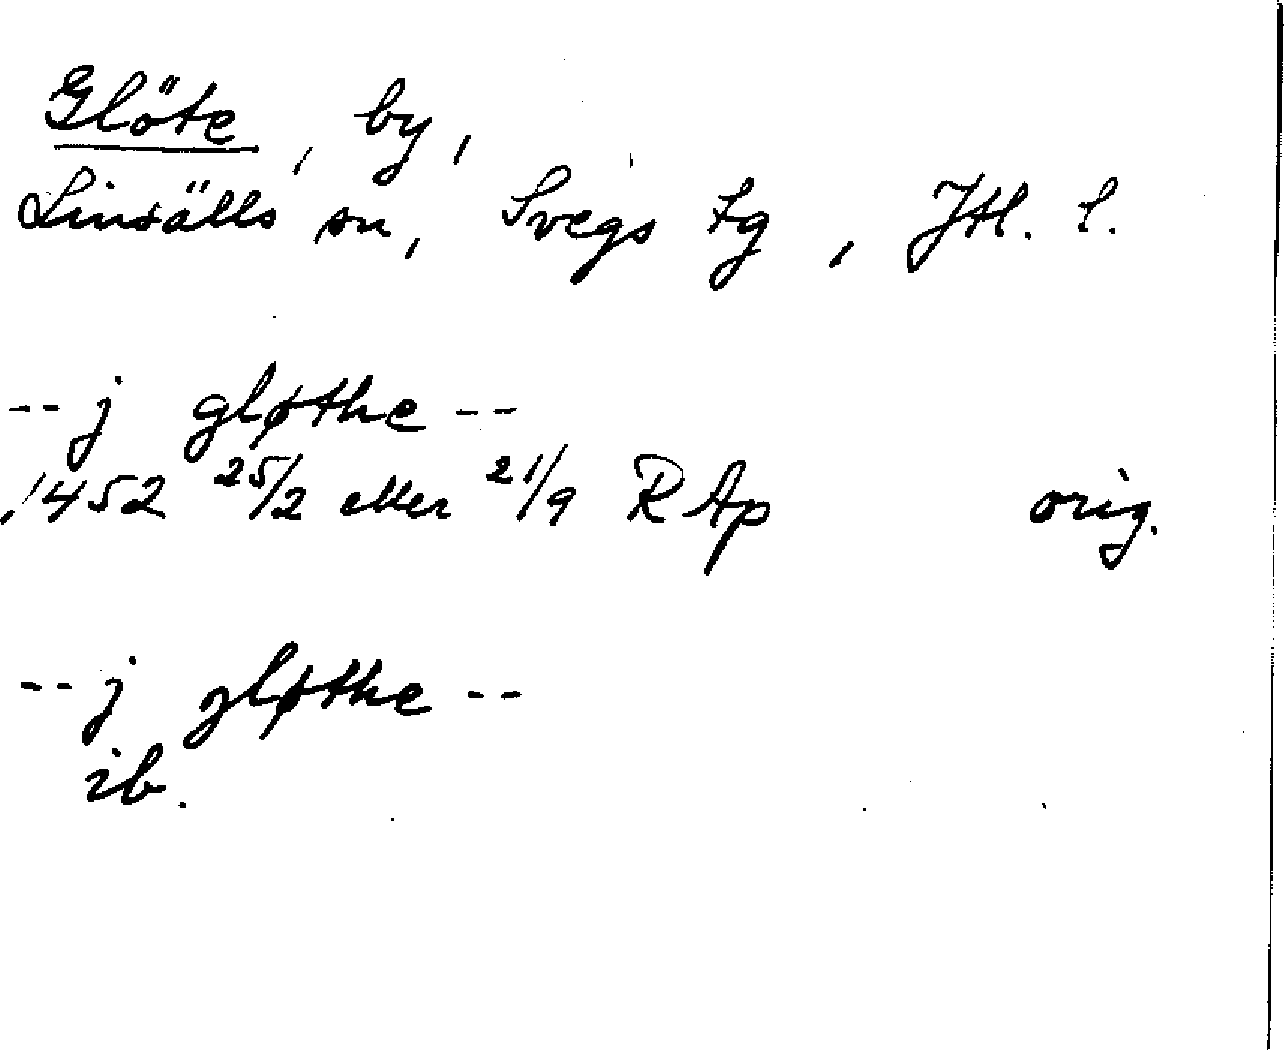 Glöte, by,
Linsälls sn, Svegs tg, Jtl. l.
-- j gløthe --
1452 25/2 eller 21/9 RAp orig.
-- j gløthe --
ib.